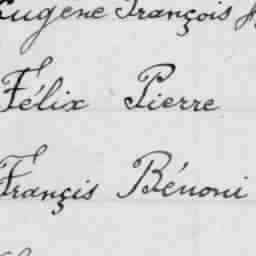 Eugène François
Félix Pierre
Françis Bénoni